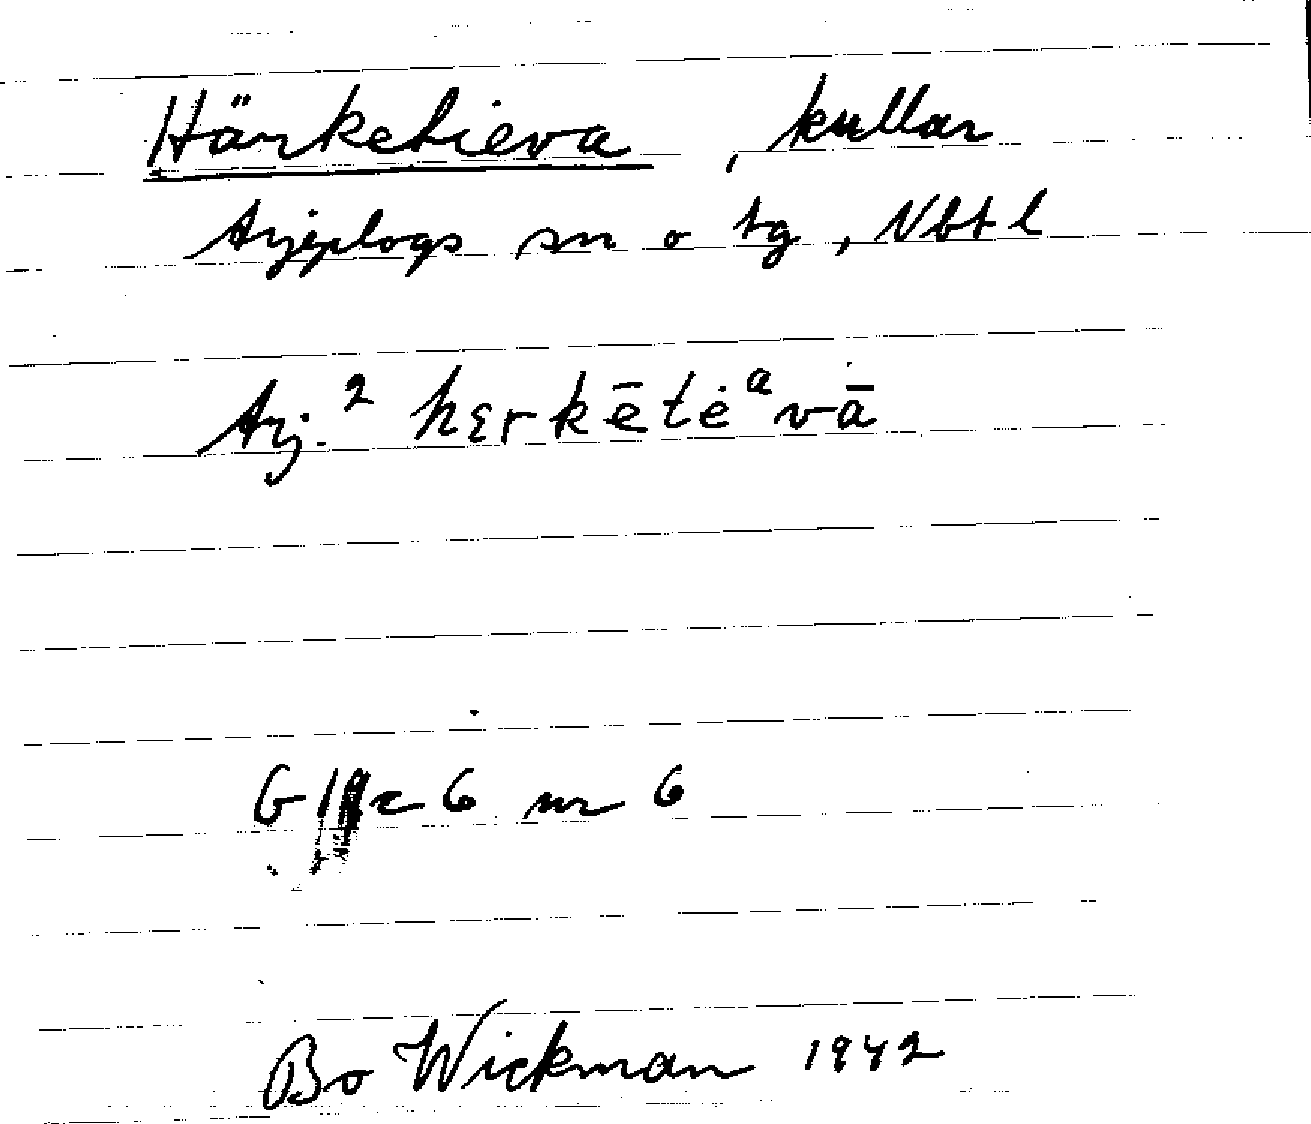 Härketieva, kullar
Arjeplogs sn o tg, Nbtl
Arj.² hɛrkētėᵃvā
c 6 nr 6
Bo Wickman 1942